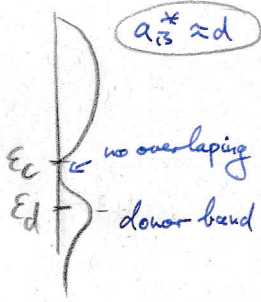 a*B ≈ d
εc
no overlaping
εd
donor band